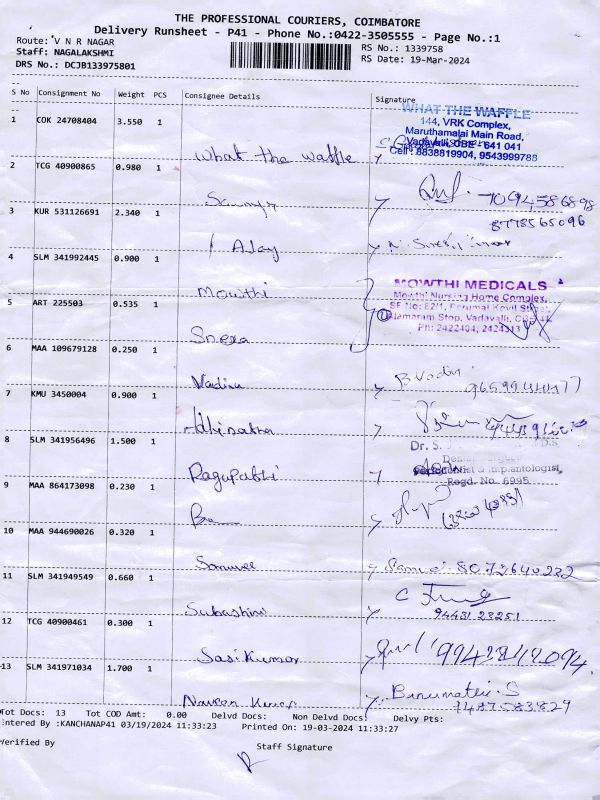 THE PROFESSIONAL COURIERS, COIMBATORE
Delivery Runsheet - P41 - Phone No.:0422-3505555 - Page No.:1
Route: V N R NAGAR
RS No.: 1339758
Staff: NAGALAKSHMI
RS Date: 19-Mar-2024
DRS No.: DCJB133975801
S No Consignment No Weight PCS Consignee Details Signature
1 COK 24708404 3.550 1
WHAT THE WAFFLE
144, VRK Complex,
Maruthamalai Main Road,
Vadavalli, CBE - 641 041
Cell : 8838819904, 9543999788
What the waffle
2 TCG 40900865 0.980 1
7094586898
8778565096
3 KUR 531126691 2.340 1
Ajay
4 SLM 341992445 0.900 1
Mowthi
MOWTHI MEDICALS
Mowthi Nursing Home Complex,
SF No: 82/1, Perumal Kovil Street,
Alamaram Stop, Vadavalli,
Ph: 2422404, 2424313
5 ART 225503 0.535 1
Sneha
6 MAA 109679128 0.250 1
7 KMU 3450004 0.900 1
8 SLM 341956496 1.500 1
Dr. S.
Implantologist
Regd. No. 6995
Ragupathi
9 MAA 864173098 0.230 1
10 MAA 944690026 0.320 1
8072640222
11 SLM 341949549 0.660 1
Subashini
94431 23251
12 TCG 40900461 0.300 1
Sasikumar
13 SLM 341971034 1.700 1
Naveen Kumar
Banumathi.S
7487583829
Tot Docs: 13 Tot COD Amt: 0.00 Delvd Docs: Non Delvd Docs: Delvy Pts:
Entered By :KANCHANAP41 03/19/2024 11:33:23 Printed On: 19-03-2024 11:33:27
Verified By Staff Signature